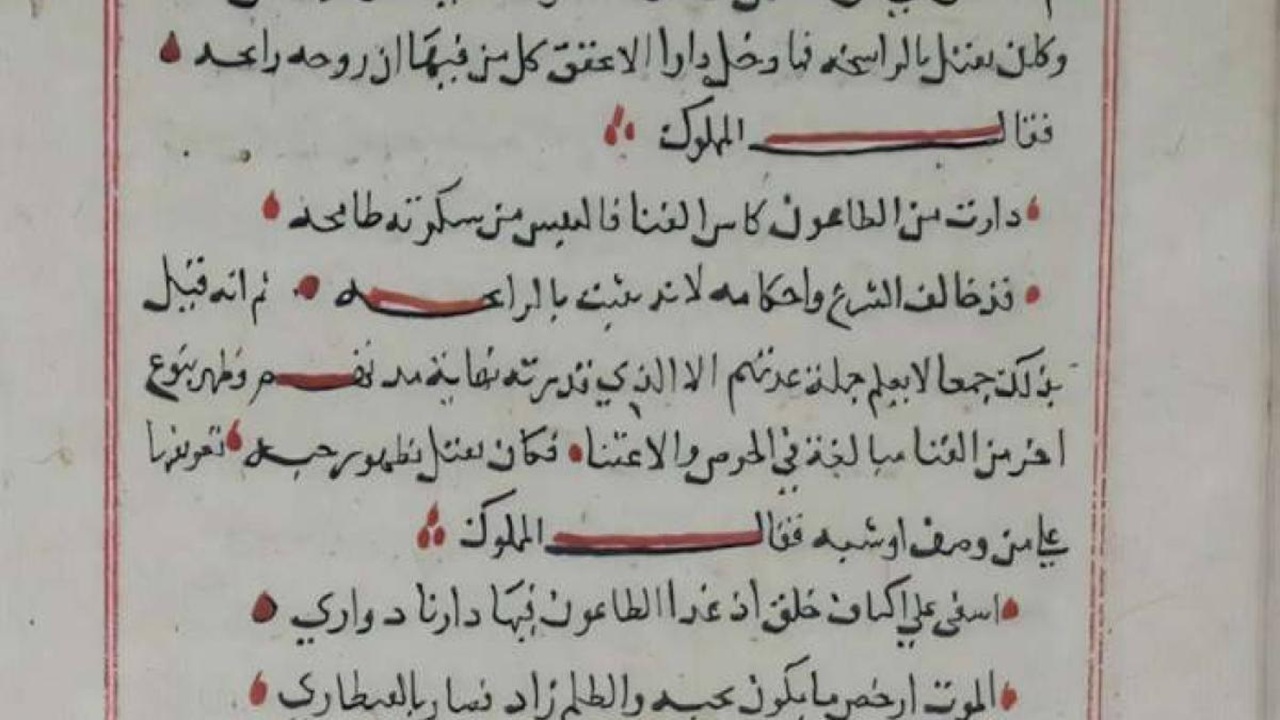 وكان يقتل بالرائحة فما دخل دارا الا تحقق كل من فيها ان روحه رائحه
فقال المملوك
دارت من الطاعون كاس الفنا فالنفس من سكرته طافحه
قد خالف الشرع واحكامه لانه يثبت بالرائحه ثم انه قتل
بذلك جمعا لا يعلم جملة عدتهم الا الذي قدرته نهاية مددهم وظهر بنوع
اخر من الفنا مبالغة في الحرص والاعتنا فكان يقتل بظهور حبه
على من وصف او شبه فقال المملوك
اسفى علي اكناف خلق اذ غدا الطاعون فيها دارنا دواري
الموت ارخص ما يكون بحبه والظلم زاد فصار بالقنطاري